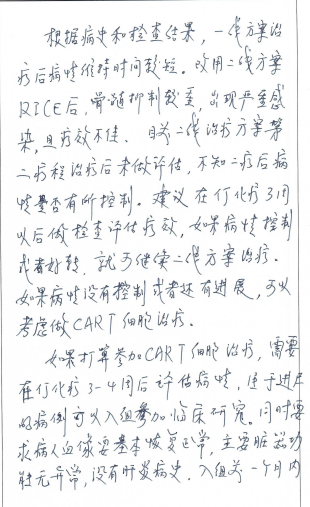 根据病史和检查结果，一线方案治
疗后病情维持时间较短。改用二线方案
RICE后，骨髓抑制较重，出现严重感
染，且疗效不佳。目前二线治疗方案第
二疗程治疗后未做评估，不知二疗后病
情是否有所控制。建议在化疗3周
以后做检查评估疗效，如果病情控制
或者好转，就可继续二线方案治疗。
如果病情没有控制或者还有进展，可以
考虑做CART细胞治疗。
如果打算参加CART细胞治疗，需要
在化疗3-4周后评估病情，进展
的病例可以入组参加临床研究。同时要
求病人血像要基本恢复正常，主要脏器功
能无异常，没有肝炎病史。入组前一个月内